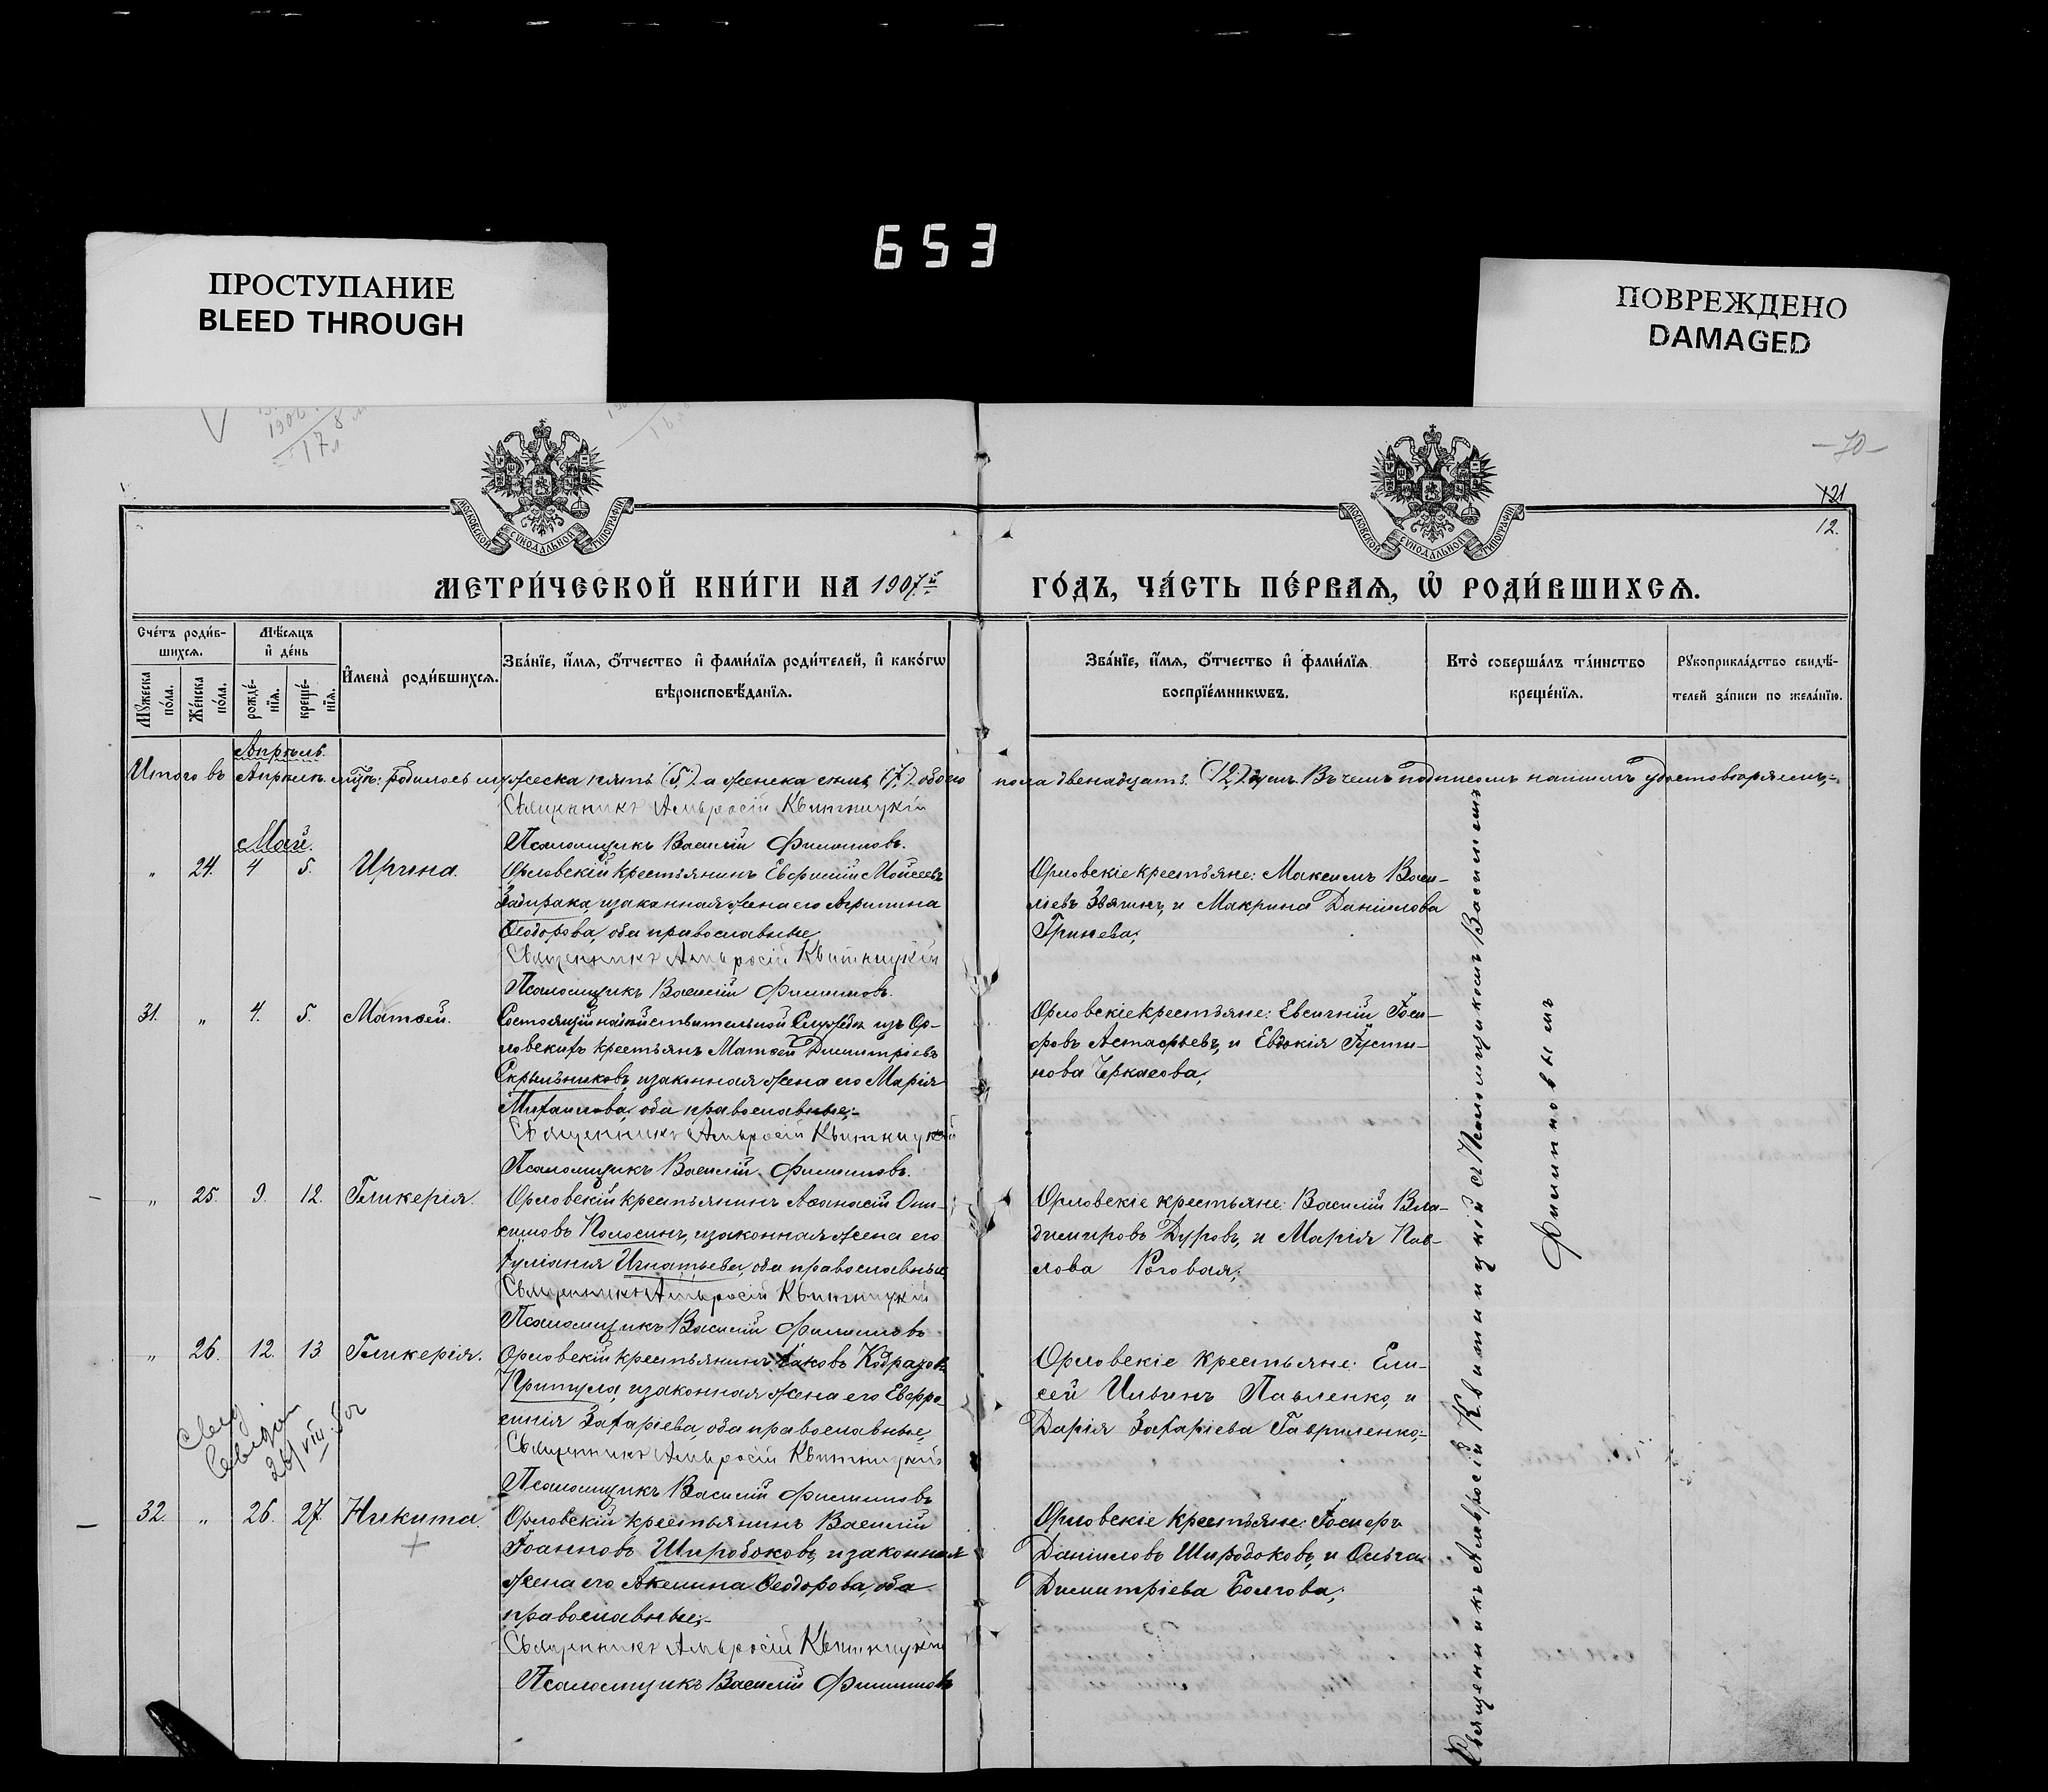 653
ПРОСТУПАНИЕ
BLEED THROUGH
ПОВРЕЖДЕНО
DAMAGED
— 70 —
121
12.
МОСКОВСКОЙ СѴНОДАЛЬНОЙ ТИПОГРАФІИ
МОСКОВСКОЙ СѴНОДАЛЬНОЙ ТИПОГРАФІИ
МЕТРИ́ЧЕСКОЙ КНИ́ГИ НА 1907й
ГО́ДЪ, ЧА́СТЬ ПЕ́РВАѦ, Ѡ҆ РОДИ́ВШИХСѦ.
Сче́тъ роди́в-
шихсѧ.
Мѣ́сѧцъ
и҆ де́нь
Мꙋ́жеска по́ла.
Же́нска по́ла.
рожде́-
нїѧ.
креще́-
нїѧ.
И҆мена̀ роди́вшихсѧ.
Зва́нїе, и҆́мѧ, ѻ҆́тчество и҆ фами́лїѧ роди́телей, и҆ како́гѡ
вѣроисповѣ́данїѧ.
Зва́нїе, и҆́мѧ, ѻ҆́тчество и҆ фами́лїѧ
воспрїе́мникѡвъ.
Кто̀ соверша́лъ та́инство
креще́нїѧ.
Рꙋкоприкла́дство свидѣ́-
телей за́писи по жела́нїю.
Апрѣль.
Итого въ Апрѣлѣ мцѣ: родилось мужеска пять (5.) а женска семь (7.) обоего пола двенадцать (12) душъ. Въ чемъ подписомъ нашимъ удостовѣряемъ,=
Священникъ Амвросій Квитницкій
Псаломщикъ Василій Филиповъ.
Май.
" 24. 4 5. Ирина.
Орловскій крестьянинъ Евфимій Моисеевъ
Забирака, и законная жена его Агрипина
Ѳеодорова, оба православные
Священникъ Амвросій Квитницкій
Псаломщикъ Василій Филиповъ.
Орловскіе крестьяне: Максимъ Васи-
льевъ Звягинъ, и Макрина Даніилова
Гринева;
31. " 4. 5. Матѳей.
Состоящій на дѣйствительной службѣ изъ Ор-
ловскихъ крестьянъ Матѳей Димитріевъ
Скрыльниковъ, и законная жена его Марія
Михаилова, оба православные,=
Священникъ Амвросій Квитницкій
Псаломщикъ Василій Филиповъ.
Орловскіе крестьяне: Евсигній Іоси-
фовъ Астафьевъ, и Евдокія Іусти-
нова Черкасова;
" 25. 9. 12. Гликерія.
Орловскій крестьянинъ Аѳанасій Они-
симовъ Колосинъ, и законная жена его
Іуліанія Игнатьева, оба православные
Священникъ Амвросій Квитницкій
Псаломщикъ Василій Филиповъ
Орловскіе крестьяне: Василій Вла-
димировъ Дуровъ, и Марія Пав-
лова Роговая;
" 26. 12. 13 Гликерія.
Орловскій крестьянинъ Іаковъ Кодратовъ
Притула, и законная жена его Евфро-
синія Захаріева, оба православные,
Священникъ Амвросій Квитницкій
Псаломщикъ Василій Филиповъ
Орловскіе крестьяне: Ели-
сей Ильинъ Павленко, и
Дарія Захаріева Гавриленко;
32. " 26. 27. Никита.
Орловскій крестьянинъ Василій
Іоанновъ Широбоковъ, и законная
жена его Акилина Ѳеодорова, оба
православные;-
Священникъ Амвросій Квитницкій
Псаломщикъ Василій Филиповъ
Орловскіе крестьяне: Іосифъ
Даніиловъ Широбоковъ, и Ольга
Димитріева Болгова;
Священникъ Амвросій Квитницкій съ Псаломщикомъ Василіемъ
Филиповымъ